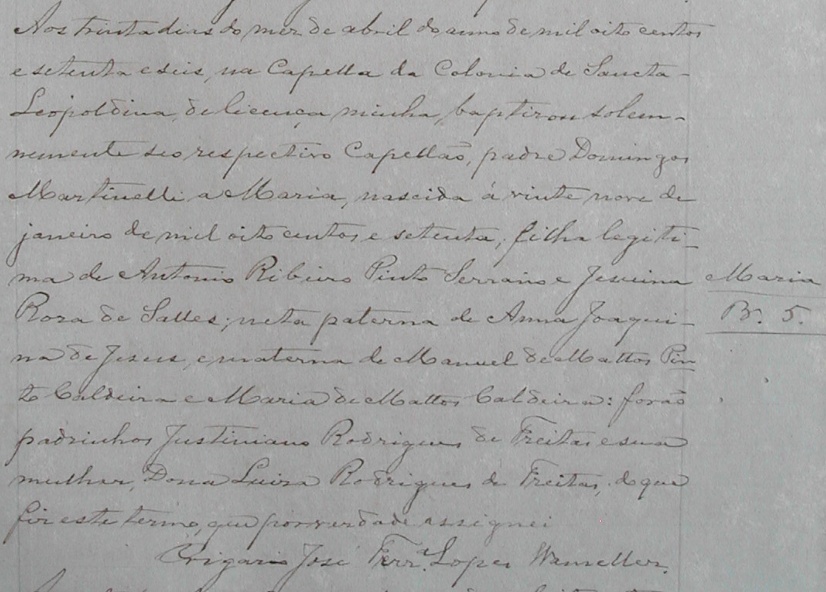 Aos trinta dias do mez de abril do anno de mil oito centos
e setenta e seis, na Capella da Colonia de Sancta-
Leopoldina, de licença minha, baptizou solem-
nemente seo respectivo Capellão, padre Domingos
Martinelli a Maria, nascida á vinte nove de
janeiro de mil oito centos e setenta; filha legiti-
ma de Antonio Ribeiro Pinto Serrano e Jesuina
Roza de Salles; neta paterna de Anna Joaqui-
na de Jesus, e materna de Manuel de Mattos Pin-
to Caldeira e Maria de Mattos Caldeira: forão
padrinhos Justiniano Rodrigues de Freitas e sua
mulher, Dona Luiza Rodrigues de Freitas, do que
fiz este termo, que por verdade assignei
O vigario José Ferr.ª Lopes Wameller.
Maria
B. 5.